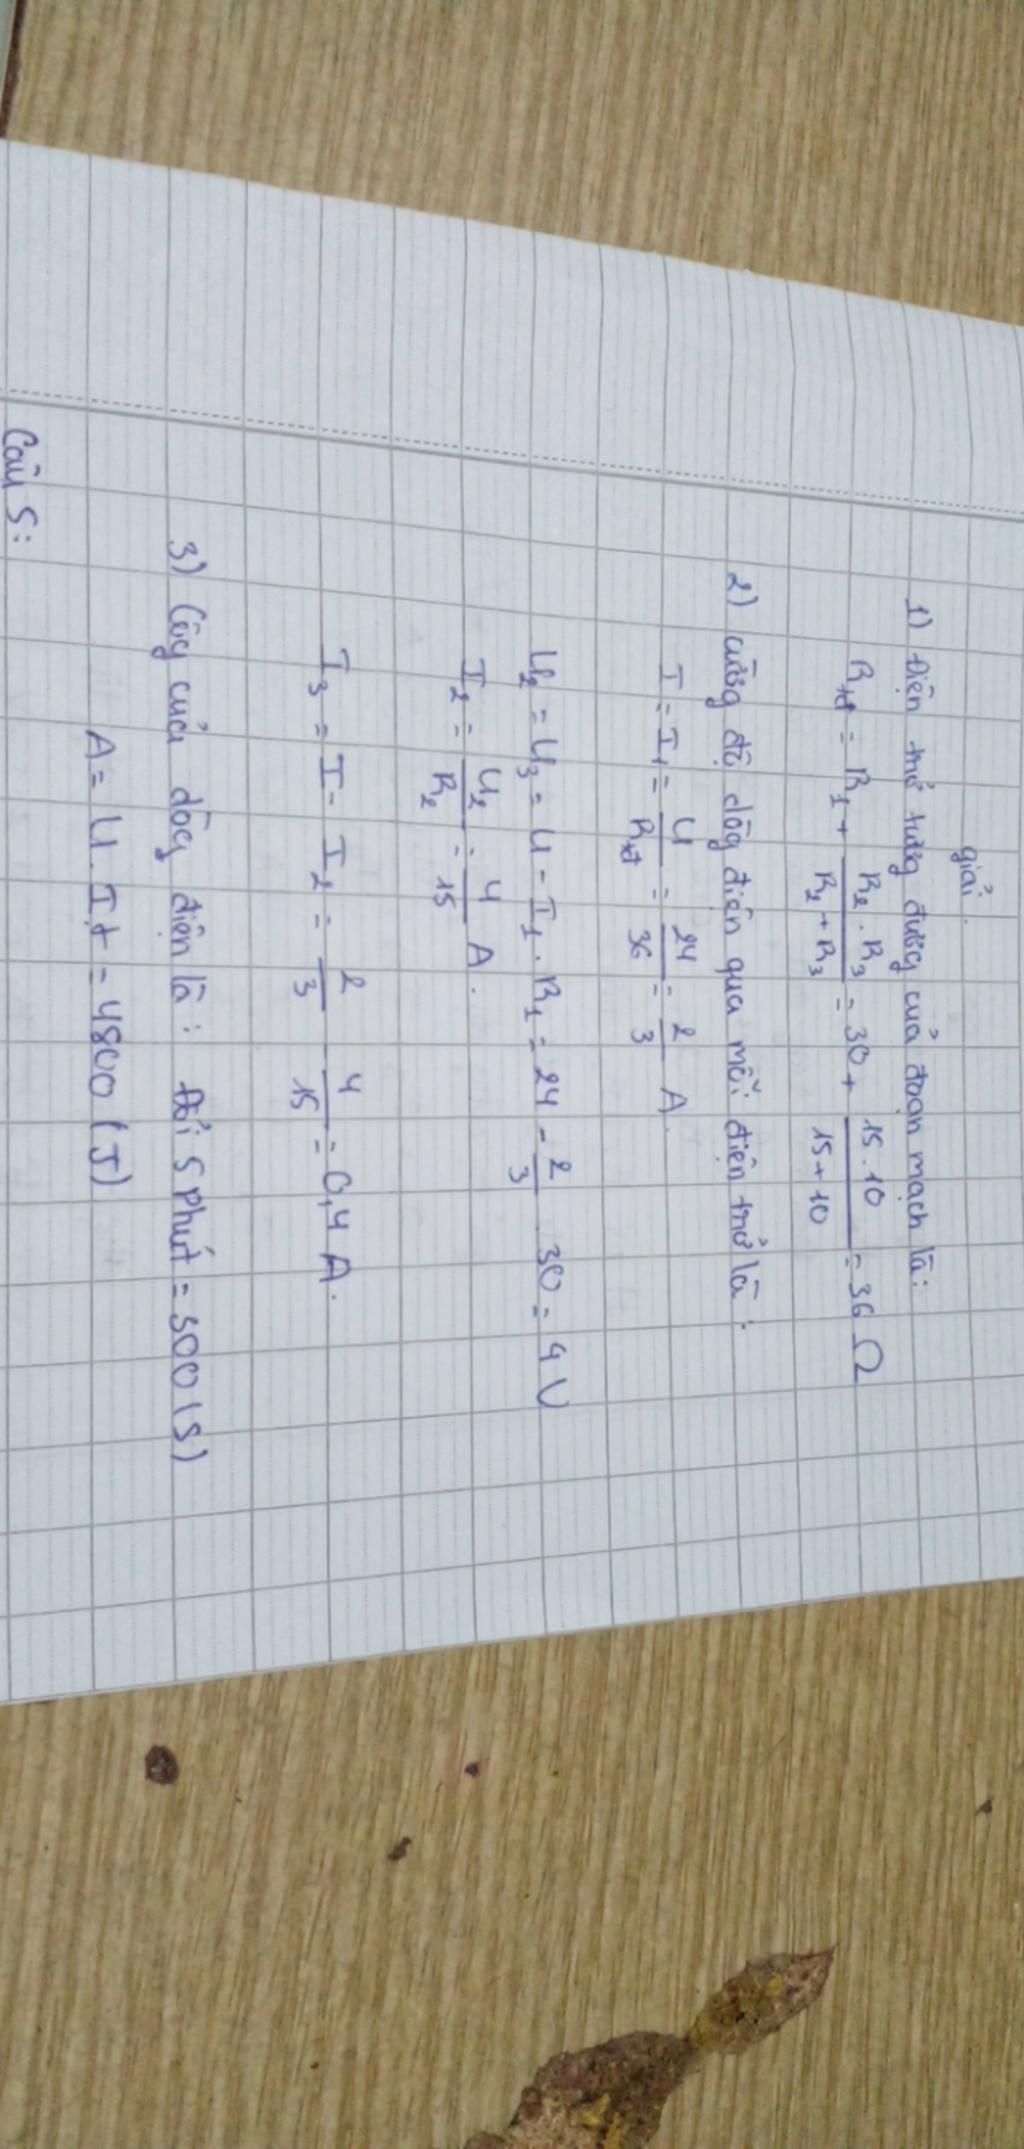 giải.
1) Điện trở tương đương của đoạn mạch là:
Rtđ = R1 + R2.R3 / R2+R3 = 30 + 15.10 / 15+10 = 36 Ω
2) cường độ dòng điện qua mỗi điện trở là:
I = I1 = U / Rtđ = 24 / 36 = 2 / 3 A.
U2 = U3 = U - I1.R1 = 24 - 2 / 3 . 30 = 4 V
I2 = U2 / R2 = 4 / 15 A.
I3 = I - I2 = 2 / 3 - 4 / 15 = 0,4 A.
3) Công của dòng điện là: Đổi 5 phút = 300 (s)
A = U.I.t = 4800 (J)
Câu 5: